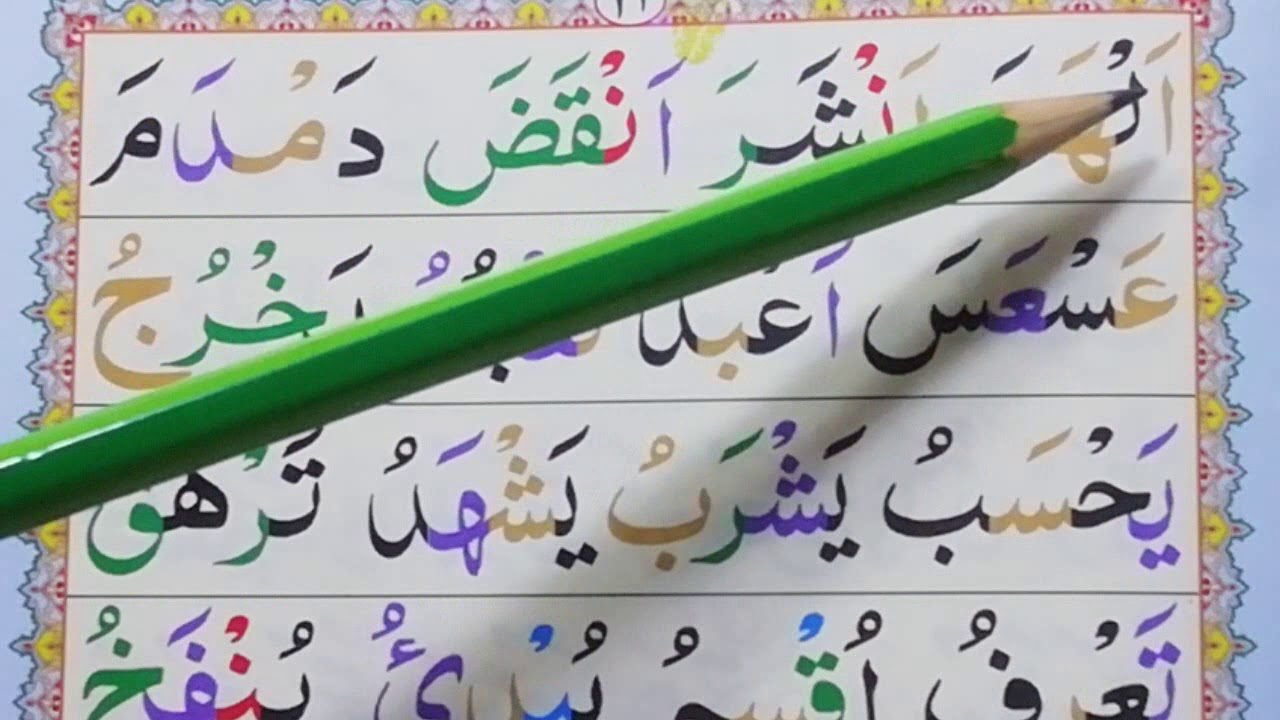 اَنْشَرَ اَنْقَضَ دَمْدَمَ
عَسْعَسَ اَعْبُدُ يَخْرُجُ
يَحْسَبُ يَشْرَبُ يَشْهَدُ تَرْهَقُ
تَعْرِفُ اُقْسِمُ يُبْدِئُ يُنْفَخُ